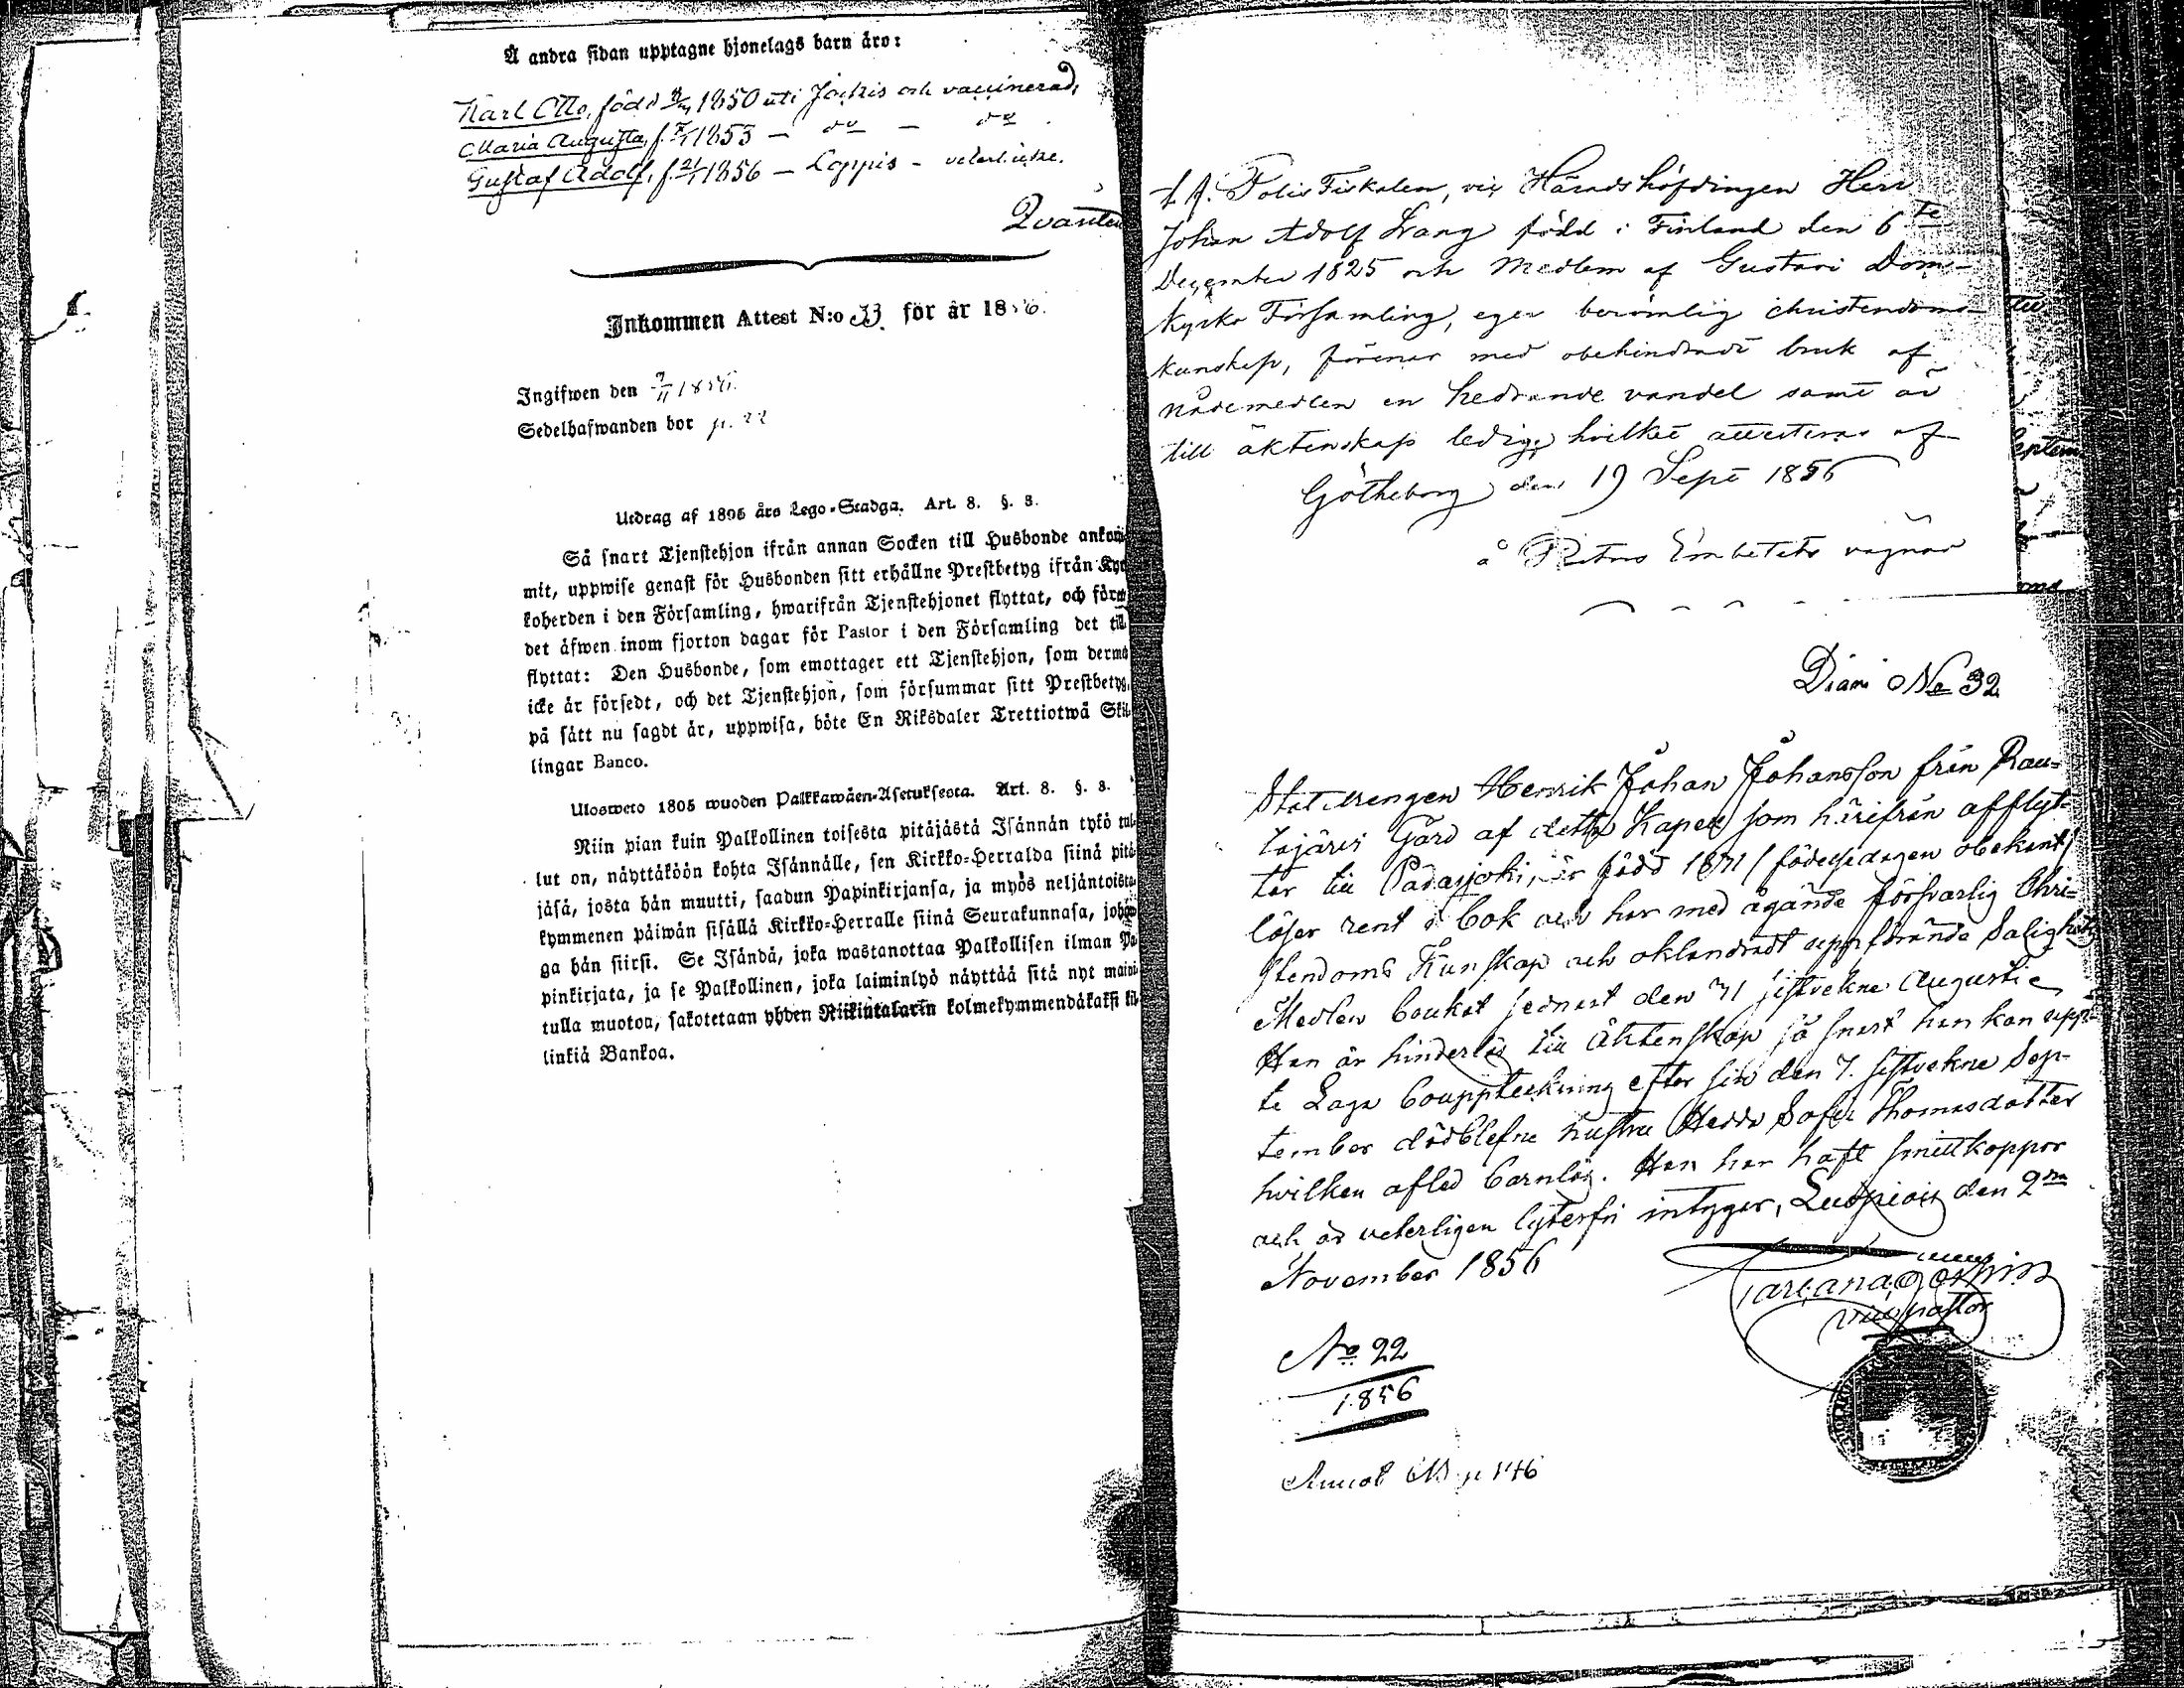 Å andra sidan upptagne hjonelags barn äro:
Karl Otto, född 1850 uti Jockis och vaccinerad,
Maria Augusta, f. 1853 — do — do.
Gustaf Adolf, f. 21/1 1856 — Loppis —
Inkommen Attest N:o 33. för år 1856.
Ingifwen den 9/11 1856.
Sedelhafwanden bor p. 22
Utdrag af 1805 års Lego-Stadga. Art. 8. §. 8.
Så snart Tjenstehjon ifrån annan Socken till Husbonde ankom-
mit, uppwise genast för Husbonden sitt erhållne Prestbetyg ifrån Kyr
koherden i den Församling, hwarifrån Tjenstehjonet flyttat, och före
det äfwen inom fjorton dagar för Pastor i den Församling det till
flyttat: Den Husbonde, som emottager ett Tjenstehjon, som dermed
icke är försedt, och det Tjenstehjon, som försummar sitt Prestbetyg,
på sätt nu sagdt är, uppwisa, böte En Riksdaler Trettiotwå Skil
lingar Banco.
Ulosweto 1805 wuoden Palkkawäen-Asetuksesta. Art. 8. §. 8.
Niin pian kuin Palkollinen toisesta pitäjästä Isännän tykö tul-
lut on, näyttäköön kohta Isännälle, sen Kirkko-Herralda siinä pitä-
jäsä, josta hän muutti, saadun Papinkirjansa, ja myös neljäntoista-
kymmenen päiwän sisällä Kirkko-Herralle siinä Seurakunnasa, johon-
ga hän siirsi. Se Isändä, joka wastanottaa Palkollisen ilman Pa
pinkirjata, ja se Palkollinen, joka laiminlyö näyttää sitä nyt maini
tulla muotoa, sakotetaan yhden Riikintalarin kolmekymmendäkaksi kil
linkiä Bankoa.
t. f. Polis Fiskalen, vice Häradshöfdingen Herr
Johan Adolf Lang född i Finland den 6te
December 1825 och Medlem af Gustavi Dom-
kyrko Församling, eger berömlig christendoms-
kunskap, förenar med obehindradt bruk af
nådemedlen en hedrande vandel samt är
till äktenskap ledig; hvilket attesteras af
Götheborg den 19 Sept 1856
å Embetets vägnar
Diari No 32
Statdrengen Henrik Johan Johansson från Rau-
tajärvi Gård af detta Kapell som härifrån afflyt-
tar till Padasjoki, är född 1831 / födelsedagen obekant/
läser rent i bok och har med ägande försvarlig Chri-
stendoms Kunskap och oklandradt uppförande Salighets
Medlen brukat sednast den 31 sistvekne Augusti
Han är hinderlös till Äktenskap så snart han kan upp-
te Laga bouppteckning efter sin den 7. sistvekne Sep-
tember dödblefne hustru Hedda Sofia Thomasdotter
hvilken afled barnlös. Han har haft smittkoppor
och är veterligen lyterfri intygar, Luopiois den 2
November 1856
No 22
1856